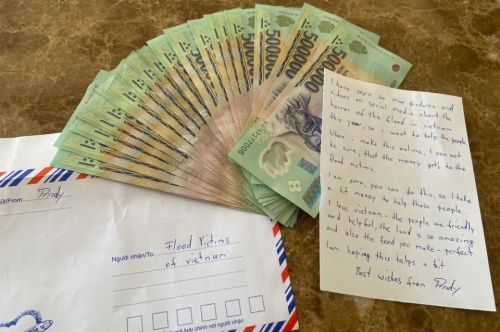 500000
500000
500000
I have seen so many pictures and
videos on social media about the
horror of the flood in vietnam
this year, so i want to help the people
When i make this online, i can not
be sure, that the money gets to the
flood victims.
I am sure, you can do this, so i take
bit money to help those people.
love vietnam - the people are friendly
and helpful, the land is so amazing
and also the food you make - perfect
I am hoping this helps a bit
Best wishes from
ười/From:
Người nhận/To:
Flood Victims
of vietnam